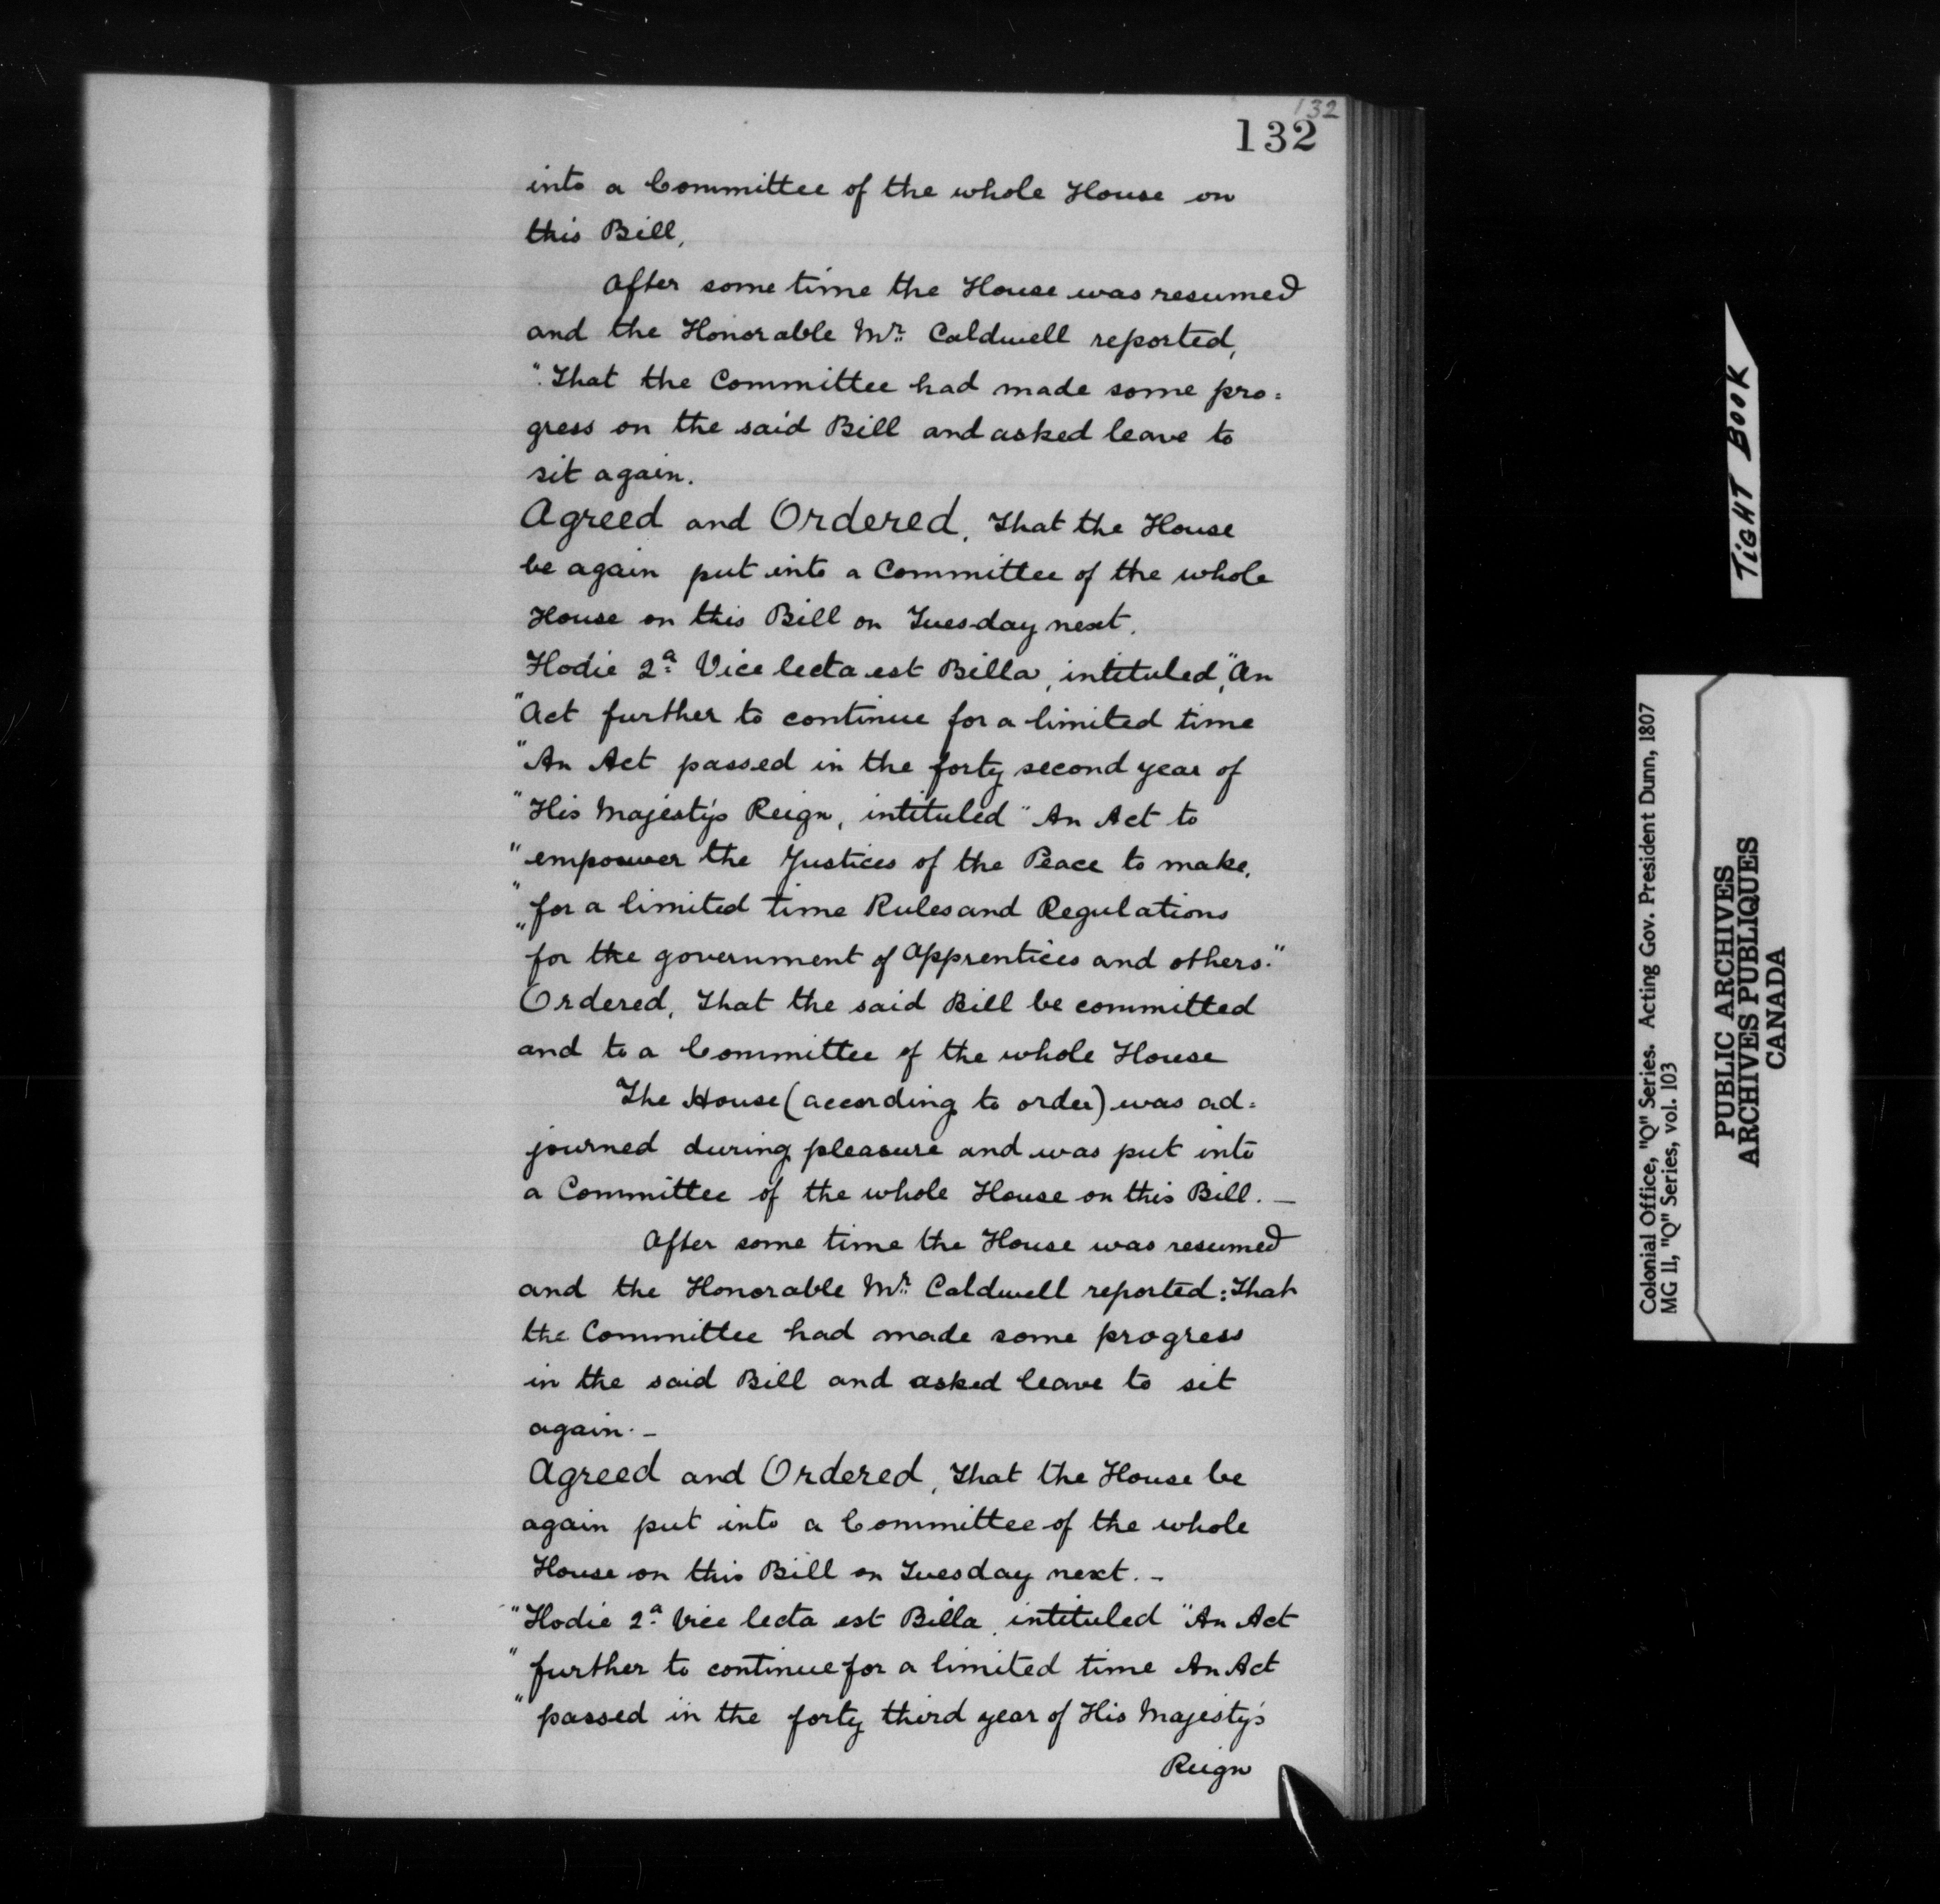 132
132
into a Committee of the whole House on
this Bill,
After some time the House was resumed
and the Honorable Mr. Caldwell reported,
". That the Committee had made some pro=
gress on the said Bill and asked leave to
sit again.
Agreed and Ordered, That the House
be again put into a Committee of the whole
House on this Bill on Tuesday next.
Hodie 2a. Vice lecta est Billa, intituled, "An
"Act further to continue for a limited time
"An Act passed in the forty second year of
"His Majesty's Reign, intituled "An Act to
"empower the Justices of the Peace to make,
"for a limited time Rules and Regulations
"for the government of Apprentices and others."
Ordered, That the said Bill be committed
and to a Committee of the whole House
The House (according to order) was ad=
journed during pleasure and was put into
a Committee of the whole House on this Bill. —
After some time the House was resumed
and the Honorable Mr. Caldwell reported: That
the Committee had made some progress
in the said Bill and asked leave to sit
again. —
Agreed and Ordered, That the House be
again put into a Committee of the whole
House on this Bill on Tuesday next. —
"Hodie 2a. Vice lecta est Billa, intituled "An Act
"further to continue for a limited time An Act
"passed in the forty third year of His Majesty's
Reign
TIGHT BOOK
Colonial Office, "Q" Series. Acting Gov. President Dunn, 1807
MG 11, "Q" Series, vol. 103
PUBLIC ARCHIVES
ARCHIVES PUBLIQUES
CANADA